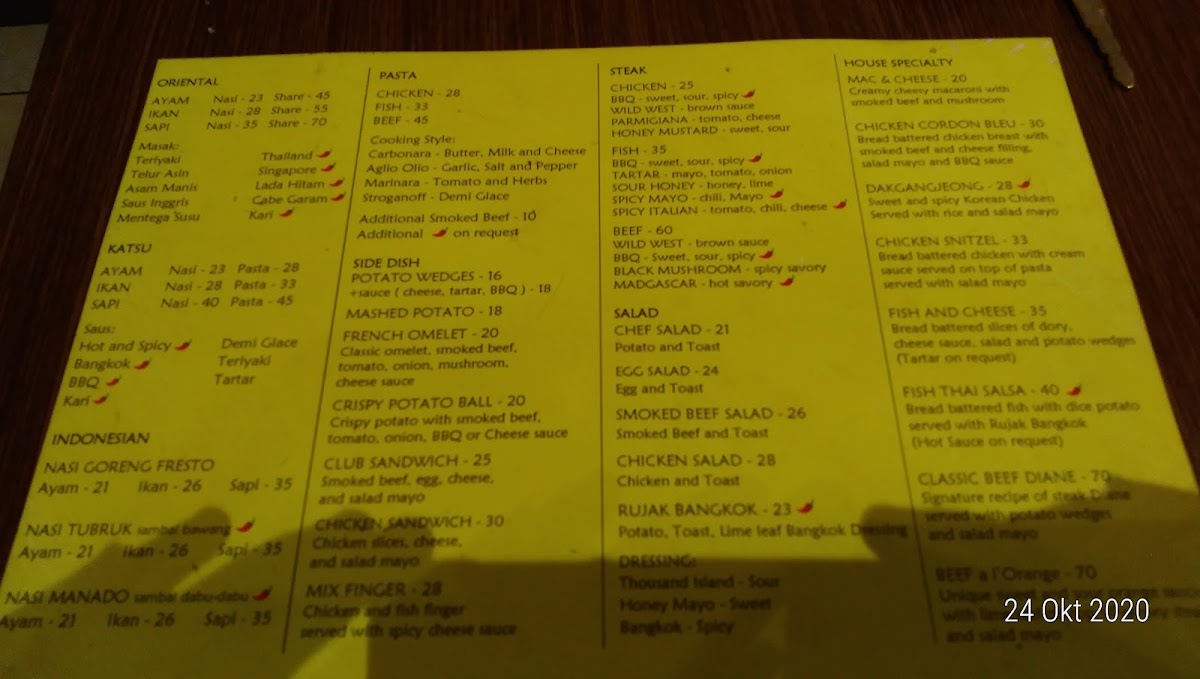 ORIENTAL
AYAM Nasi - 23 Share - 45
IKAN Nasi - 28 Share - 55
SAPI Nasi - 35 Share - 70
Masak:
Teriyaki Thailand
Telur Asin Singapore
Asam Manis Lada Hitam
Saus Inggris Cabe Garam
Mentega Susu Kari
KATSU
AYAM Nasi - 23 Pasta - 28
IKAN Nasi - 28 Pasta - 33
SAPI Nasi - 40 Pasta - 45
Saus:
Hot and Spicy Demi Glace
Bangkok Teriyaki
BBQ Tartar
Kari
INDONESIAN
NASI GORENG FRESTO
Ayam - 21 Ikan - 26 Sapi - 35
NASI TUBRUK sambal bawang
Ayam - 21 Ikan - 26 Sapi - 35
NASI MANADO sambal dabu-dabu
Ayam - 21 Ikan - 26 Sapi - 35
PASTA
CHICKEN - 28
FISH - 33
BEEF - 45
Cooking Style:
Carbonara - Butter, Milk and Cheese
Aglio Olio - Garlic, Salt and Pepper
Marinara - Tomato and Herbs
Stroganoff - Demi Glace
Additional Smoked Beef - 10
Additional on request
SIDE DISH
POTATO WEDGES - 16
+sauce ( cheese, tartar, BBQ ) - 18
MASHED POTATO - 18
FRENCH OMELET - 20
Classic omelet, smoked beef,
tomato, onion, mushroom,
cheese sauce
CRISPY POTATO BALL - 20
Crispy potato with smoked beef,
tomato, onion, BBQ or Cheese sauce
CLUB SANDWICH - 25
Smoked beef, egg, cheese,
and salad mayo
CHICKEN SANDWICH - 30
Chicken slices, cheese,
and salad mayo
MIX FINGER - 28
Chicken and fish finger
served with spicy cheese sauce
STEAK
CHICKEN - 25
BBQ - sweet, sour, spicy
WILD WEST - brown sauce
PARMIGIANA - tomato, cheese
HONEY MUSTARD - sweet, sour
FISH - 35
BBQ - sweet, sour, spicy
TARTAR - mayo, tomato, onion
SOUR HONEY - honey, lime
SPICY MAYO - chili, Mayo
SPICY ITALIAN - tomato, chili, cheese
BEEF - 60
WILD WEST - brown sauce
BBQ - Sweet, sour, spicy
BLACK MUSHROOM - spicy savory
MADGASCAR - hot savory
SALAD
CHEF SALAD - 21
Potato and Toast
EGG SALAD - 24
Egg and Toast
SMOKED BEEF SALAD - 26
Smoked Beef and Toast
CHICKEN SALAD - 28
Chicken and Toast
RUJAK BANGKOK - 23
Potato, Toast, Lime leaf Bangkok Dressing
DRESSING:
Thousand Island - Sour
Honey Mayo - Sweet
Bangkok - Spicy
HOUSE SPECIALTY
MAC & CHEESE - 20
Creamy cheesy macaroni with
smoked beef and mushroom
CHICKEN CORDON BLEU - 30
Bread battered chicken breast with
smoked beef and cheese filling,
salad mayo and BBQ sauce
DAKGANGJEONG - 28
Sweet and spicy Korean Chicken
Served with rice and salad mayo
CHICKEN SNITZEL - 33
Bread battered chicken with cream
sauce served on top of pasta
served with salad mayo
FISH AND CHEESE - 35
Bread battered slices of dory,
cheese sauce, salad and potato wedges
(Tartar on request)
FISH THAI SALSA - 40
Bread battered fish with dice potato
served with Rujak Bangkok
(Hot Sauce on request)
CLASSIC BEEF DIANE - 70
Signature recipe of steak Diane
served with potato wedges
and salad mayo
BEEF a l'Orange - 70
Unique
with
and salad mayo
24 Okt 2020